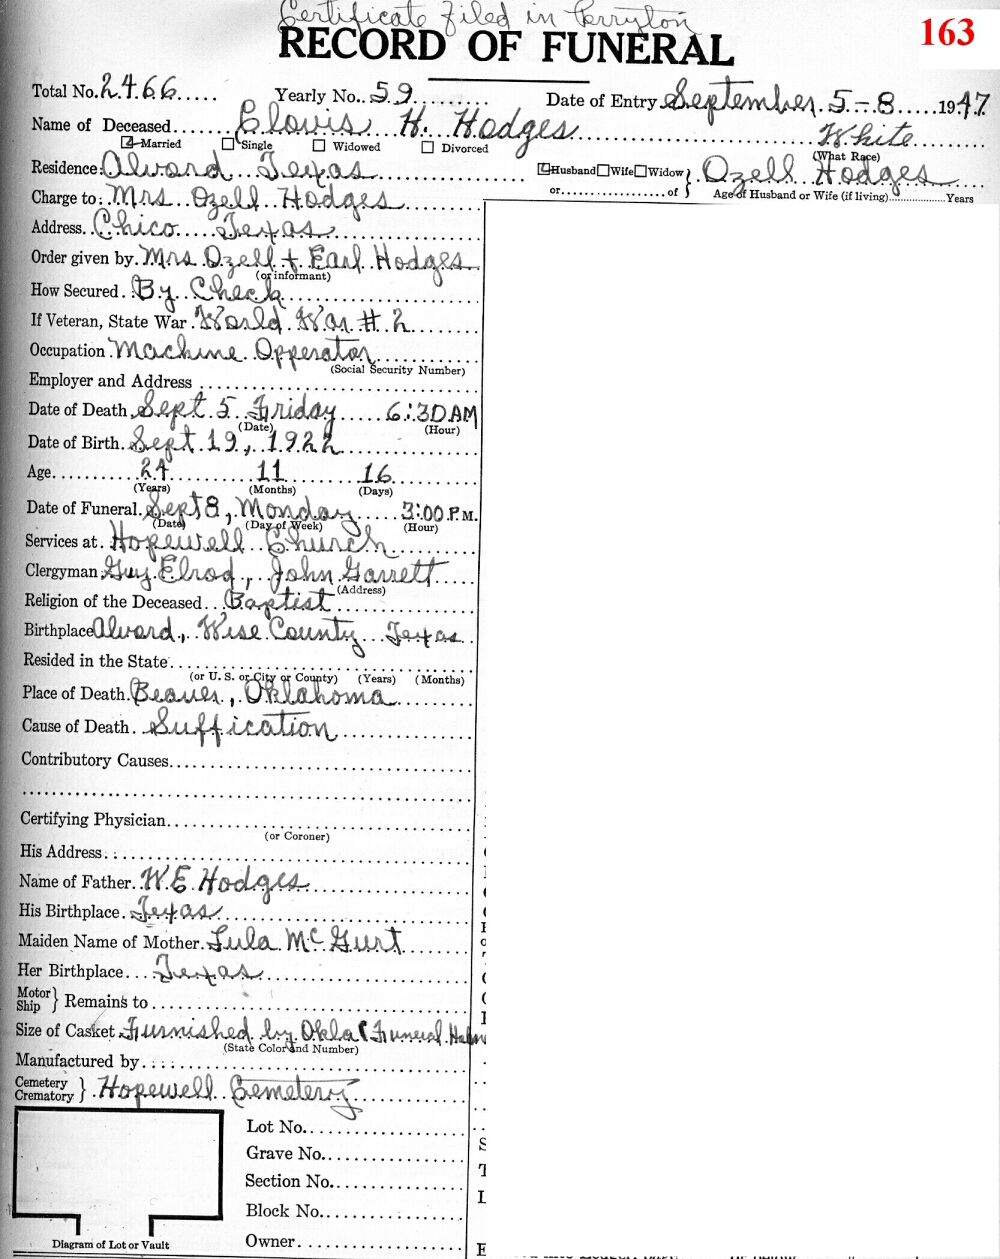 Certificate Filed in Perryton
163
RECORD OF FUNERAL
Total No. 2466 Yearly No. 59 Date of Entry September 5-8 1947
Name of Deceased Clovis H. Hodges White
Married Single Widowed Divorced (What Race)
Residence: Alvord Texas Husband Wife Widow or of } Ozell Hodges
Age of Husband or Wife (if living) Years
Charge to: Mrs Ozell Hodges
Address. Chico Texas
Order given by. Mrs Ozell + Earl Hodges
(or informant)
How Secured. By Check
If Veteran, State War. World War # 2
Occupation. Machine Opperator
(Social Security Number)
Employer and Address
Date of Death. Sept 5 Friday 6:30 AM
(Date) (Hour)
Date of Birth. Sept 19, 1922
Age 24 11 16
(Years) (Months) (Days)
Date of Funeral. Sept 8, Monday 3:00 P.M.
(Date) (Day of Week) (Hour)
Services at. Hopewell Church
Clergyman. Guy Elrod, John Garrett
(Address)
Religion of the Deceased Baptist
Birthplace Alvord, Wise County Texas
Resided in the State
(or U. S. or City or County) (Years) (Months)
Place of Death. Beaver, Oklahoma
Cause of Death. Suffication
Contributory Causes
Certifying Physician
(or Coroner)
His Address
Name of Father. W.E. Hodges
His Birthplace. Texas
Maiden Name of Mother. Lula Mc Gurt
Her Birthplace Texas
Motor Ship } Remains to
Size of Casket Furnished by Okla Funeral
(State Color and Number)
Manufactured by
Cemetery Crematory } Hopewell Cemetery
Lot No.
Grave No.
Section No.
Block No.
Owner
Diagram of Lot or Vault